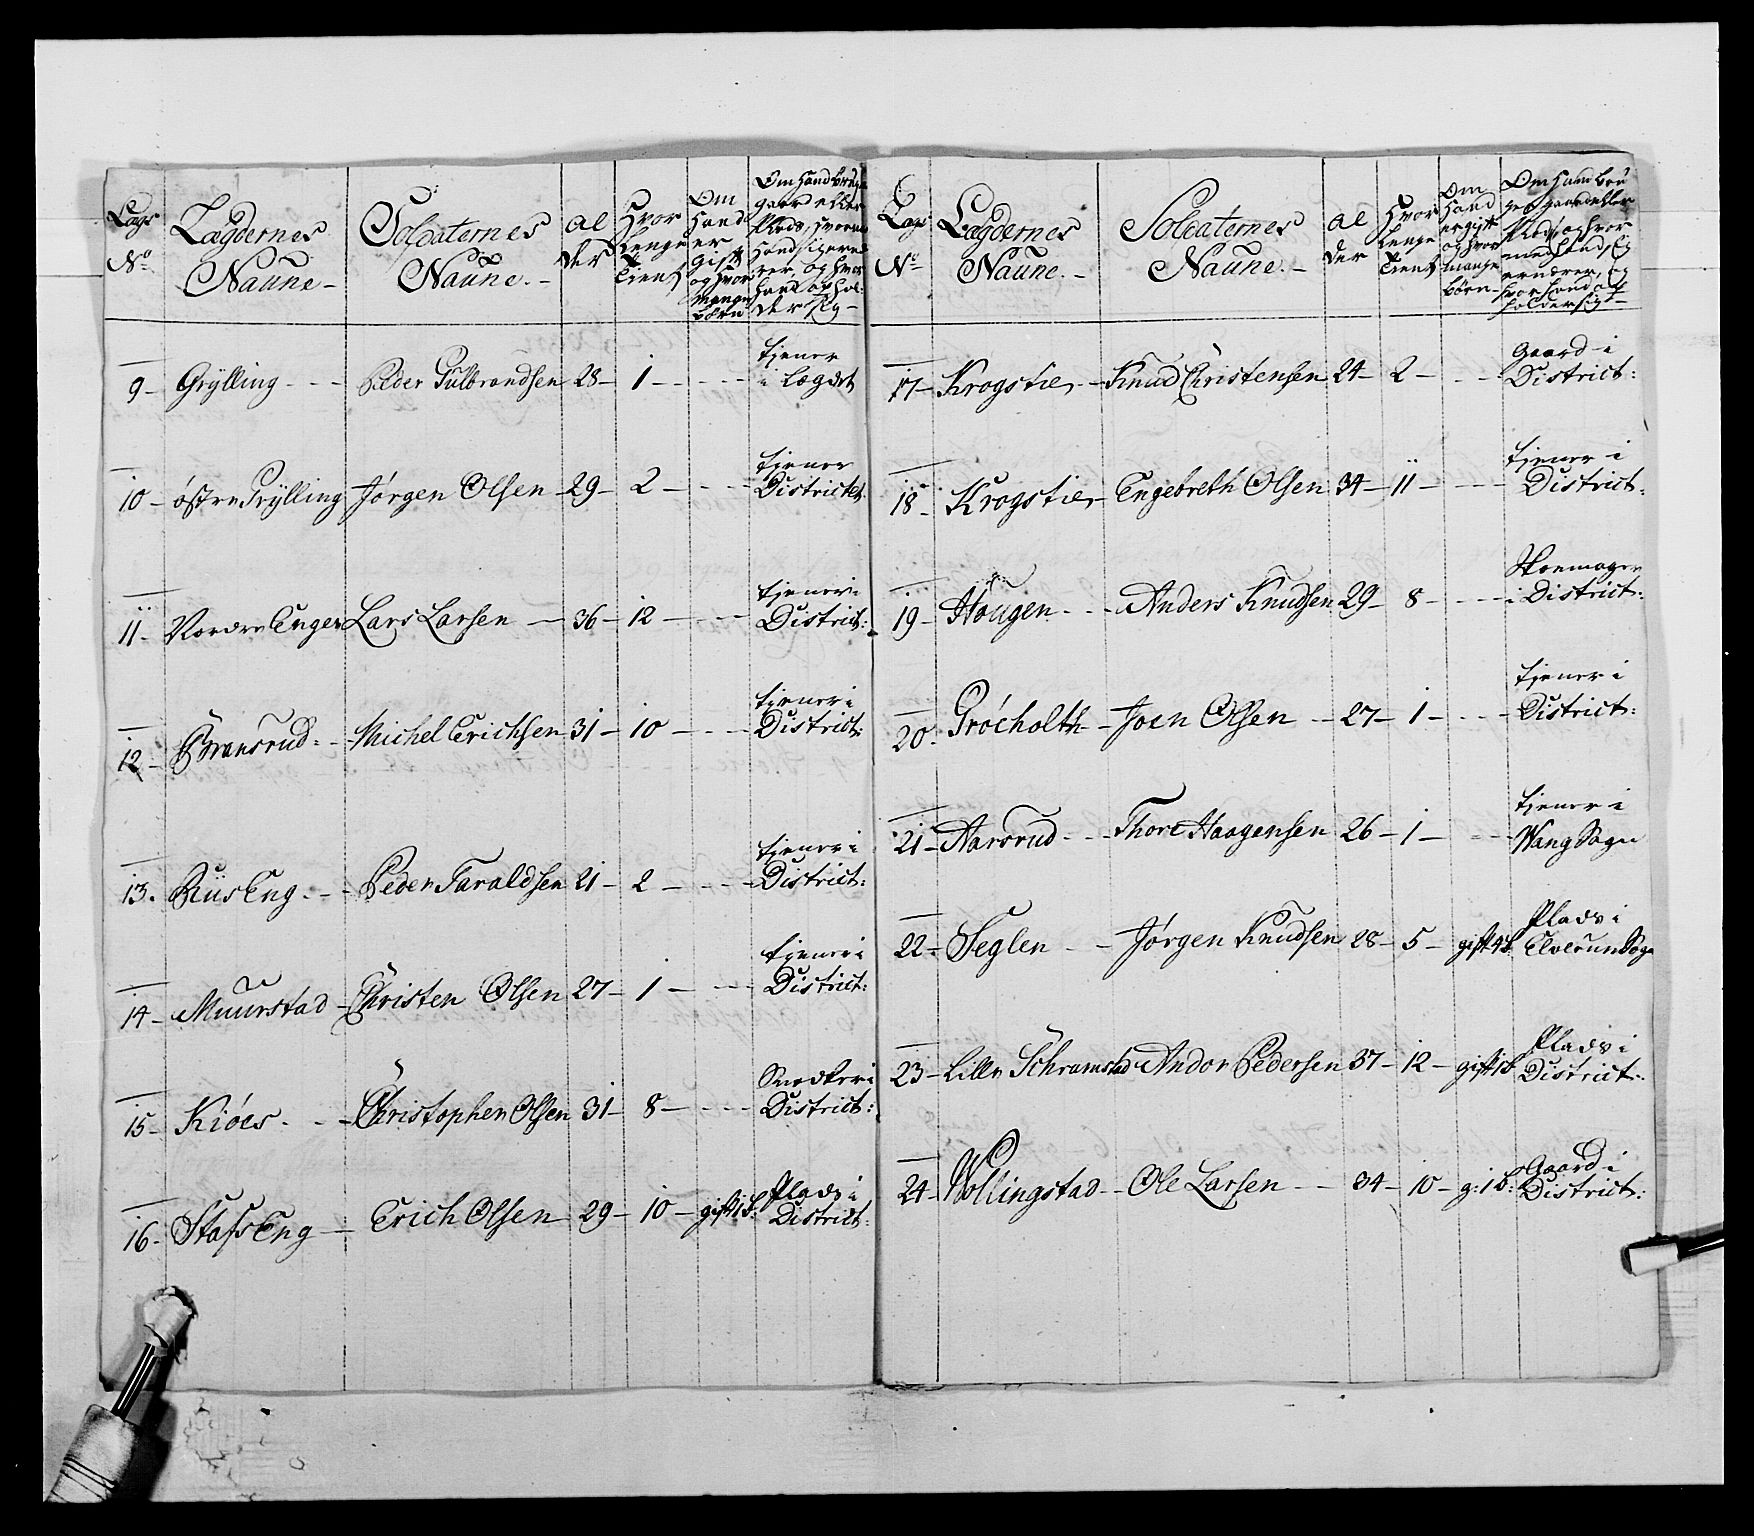 Lægs No Lægdernes Naune Soldaternes Naune Alder Hvor lenge tient Om hand er gift og hvor mange børn Om hand bruger gaard eller Plads, hvormed hand sig ernærer, og hvor hand opholder sig
9 Grylling Peder Gulbrandsen 28 1 tjener i Lægdet
10 østre Grylling Jørgen Olsen 29 2 tjener Districtet
11 Nordre Enger Lars Larsen 36 12 tjener i District:
12 Michel Erichsen 31 10 tjener i District:
13 RiisEng Peder Taraldsen 21 2 tjener i District:
14 Muurstad Christen Olsen 27 1 tjener i District:
15 Kiöes Christopher Olsen 31 8 Snedker i District:
16 StafsEng Erich Olsen 29 10 gift 1 b: Plads i District:
Lægs No Lægdernes Naune Soldaternes Naune Alder Hvor lenge tient Om hand er gift og hvor mange børn Om hand bruger gaard eller Plads, og hvormed hand sig ernærer, og hvor hand opholder sig
17 Krogstie Knud Christensen 24 2 Gaard i District:
18 Krogstie Engebreth Olsen 34 11 tjener i District:
19 Hougen Anders Knudsen 29 8 Skoemager i District:
20 Gröcholth Joen Olsen 27 1 tjener i District:
21 Aarsrud Thore Haagensen 26 1 tjener i Wang Sogn
22 Seglen Jørgen Knudsen 28 5 gift 4 b Plads i Elverum Sogn
23 Lille Schramstad Andor Pedersen 37 12 gift 1 b Plads i District:
24 Wollingstad Ole Larsen 34 10 g: 1 b: Gaard i District: